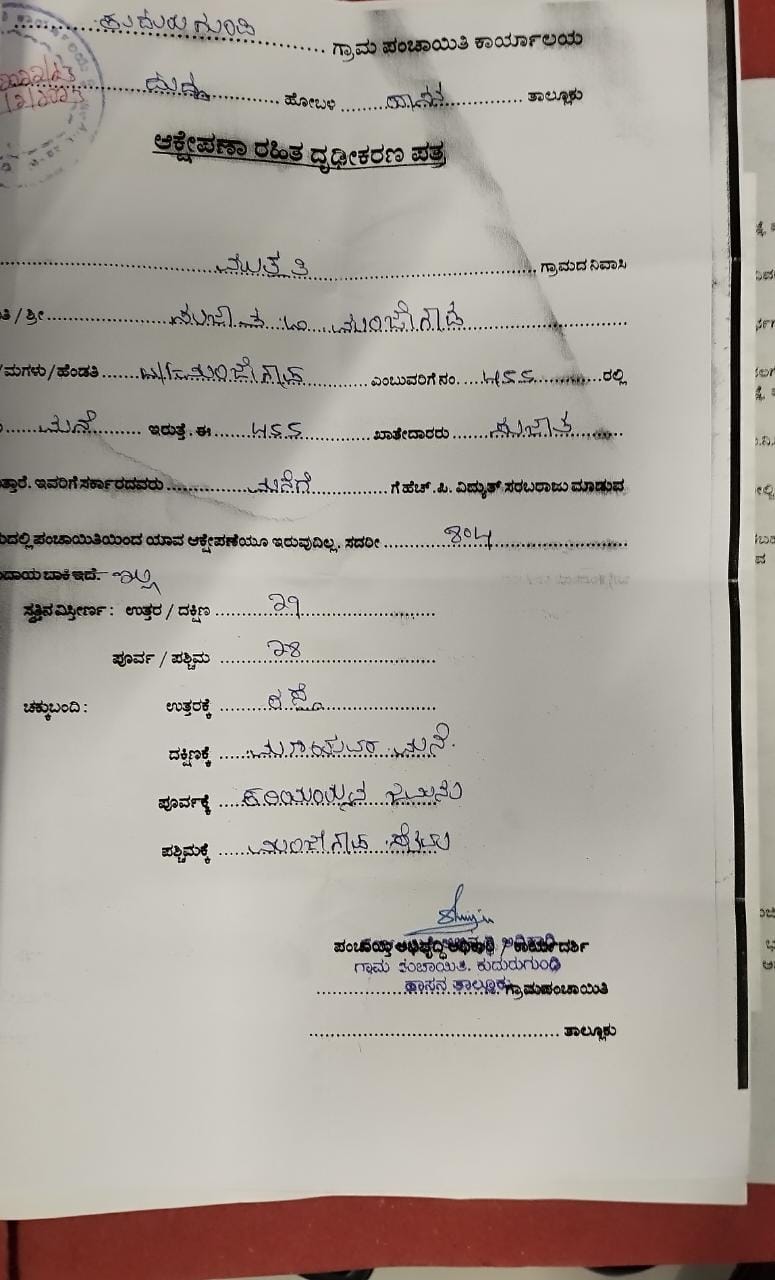 ಕುದುರುಗುಂಡಿ ಗ್ರಾಮ ಪಂಚಾಯಿತಿ ಕಾರ್ಯಾಲಯ
ದುದ್ದ ಹೋಬಳಿ ಹಾಸನ ತಾಲ್ಲೂಕು
ಆಕ್ಷೇಪಣಾ ರಹಿತ ದೃಢೀಕರಣ ಪತ್ರ
ಗ್ರಾಮದ ನಿವಾಸಿ
ತಿ / ಶ್ರೀ ಸುಜಾತ ಮಂಜೇಗೌಡ
/ಮಗಳು/ಹೆಂಡತಿ ಮಂಜೇಗೌಡ ಎಂಬುವರಿಗೆ ನಂ. ೪೨೨ ರಲ್ಲಿ
ಮನೆ ಇರುತ್ತೆ. ಈ ೪೨೨ ಖಾತೇದಾರರು ಸುಜಾತ
ತ್ತಾರೆ. ಇವರಿಗೆ ಸರ್ಕಾರದವರು ಮನೆಗೆ ಗೆ ಹೆಚ್.ಪಿ. ವಿದ್ಯುತ್ ಸರಬರಾಜು ಮಾಡುವ
ದಲ್ಲಿ ಪಂಚಾಯಿತಿಯಿಂದ ಯಾವ ಆಕ್ಷೇಪಣೆಯೂ ಇರುವುದಿಲ್ಲ. ಸದರೀ
ದಾಯ ಬಾಕಿ ಇದೆ. ಇಲ್ಲ
ಸ್ವತ್ತಿನ ವಿಸ್ತೀರ್ಣ : ಉತ್ತರ / ದಕ್ಷಿಣ ೨೪
ಪೂರ್ವ / ಪಶ್ಚಿಮ ೨೪
ಚಕ್ಕುಬಂದಿ : ಉತ್ತರಕ್ಕೆ ರಸ್ತೆ
ದಕ್ಷಿಣಕ್ಕೆ ಮನೆ.
ಪೂರ್ವಕ್ಕೆ ಕರಿಯಯ್ಯನ ಜಮೀನು
ಪಶ್ಚಿಮಕ್ಕೆ ಮಂಜೇಗೌಡ
ಪಂಚಾಯ್ತಿ ಅಭಿವೃದ್ಧಿ ಅಧಿಕಾರಿ / ಕಾರ್ಯದರ್ಶಿ
ಗ್ರಾಮ ಪಂಚಾಯಿತಿ. ಕುದುರುಗುಂಡಿ
ಹಾಸನ ತಾಲ್ಲೂಕು ಗ್ರಾಮಪಂಚಾಯಿತಿ
ತಾಲ್ಲೂಕು